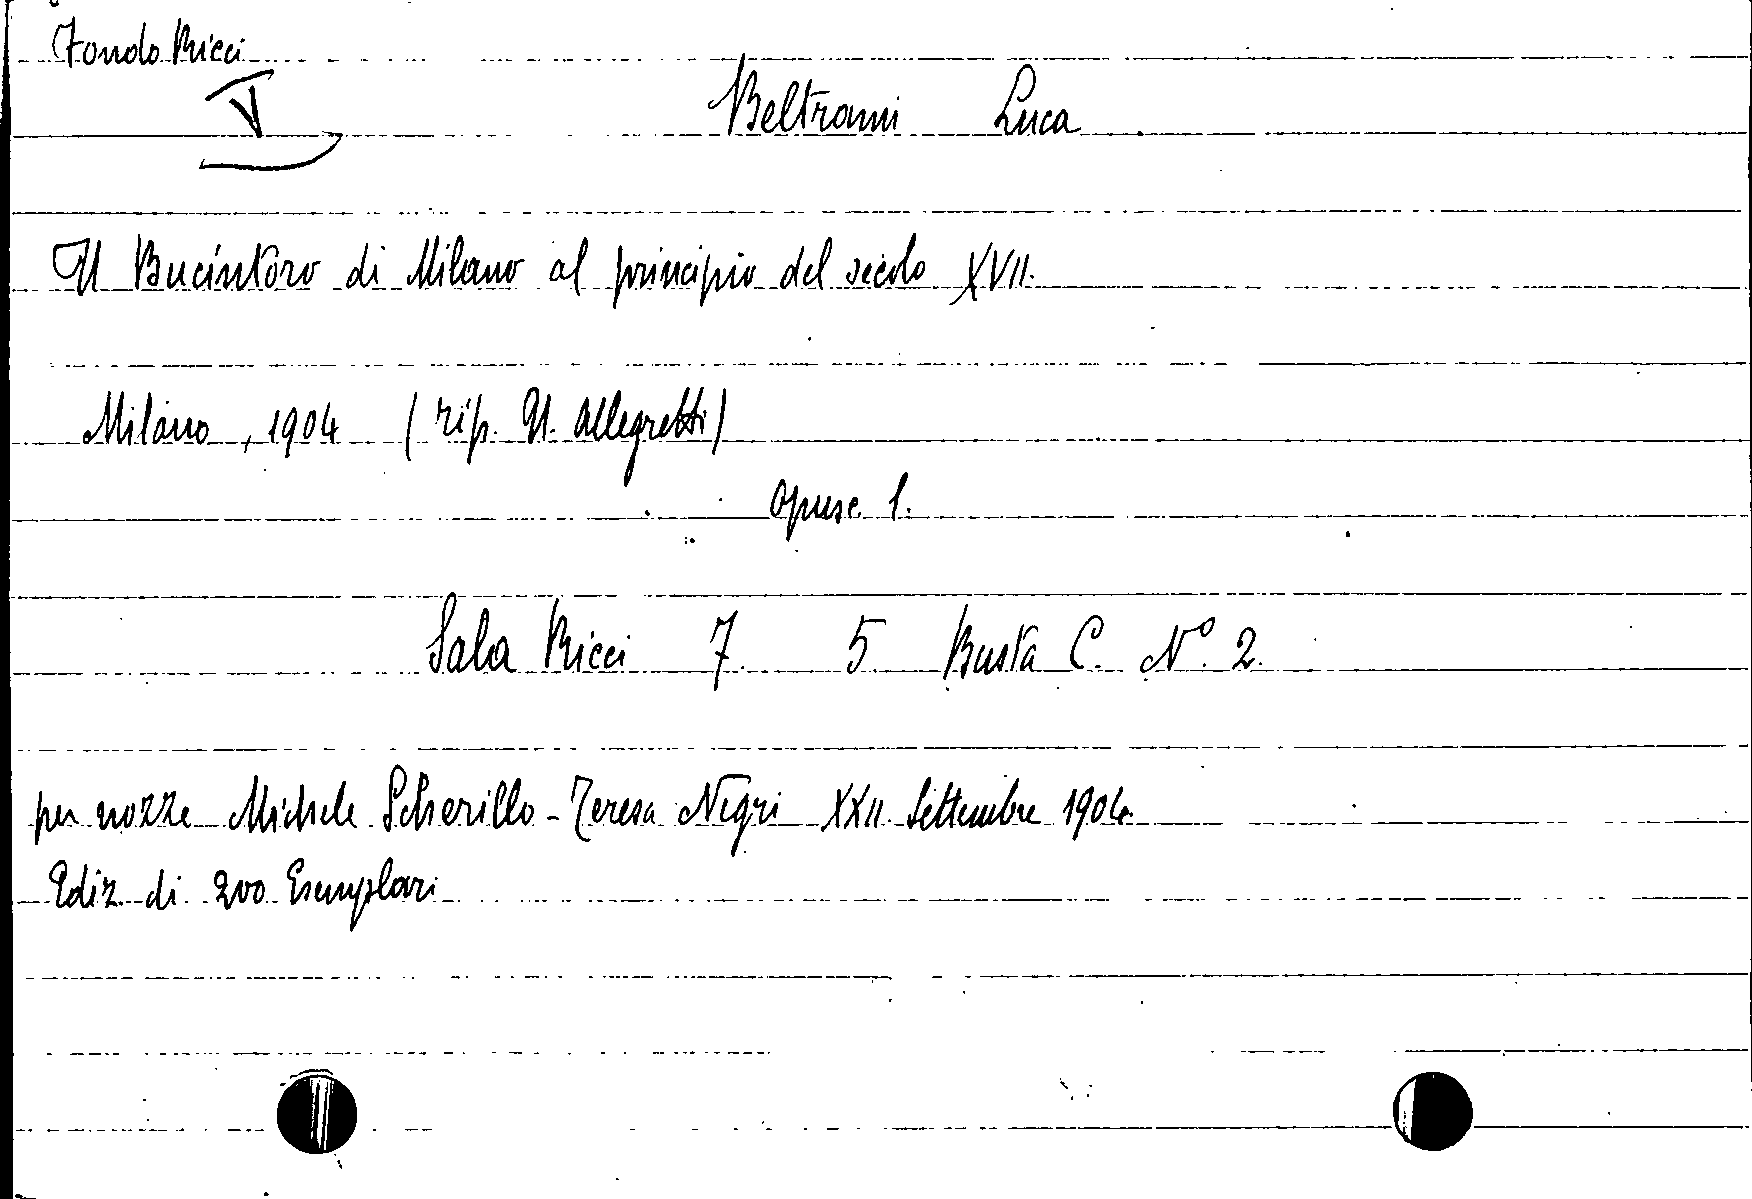 Fondo Ricci
V
Beltrami Luca
Il Bucintoro di Milano al principio del secolo XVII.
Milano, 1904 (tip. U. Allegretti)
opusc. 1.
Sala Ricci 7. 5 Busta C. N° 2.
per nozze Michele Scherillo - Teresa Negri XXII Settembre 1904.
Ediz. di 200 Esemplari